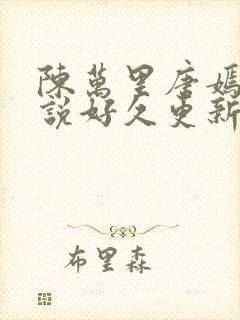 陳萬里唐嫣
說好久更新
布里森